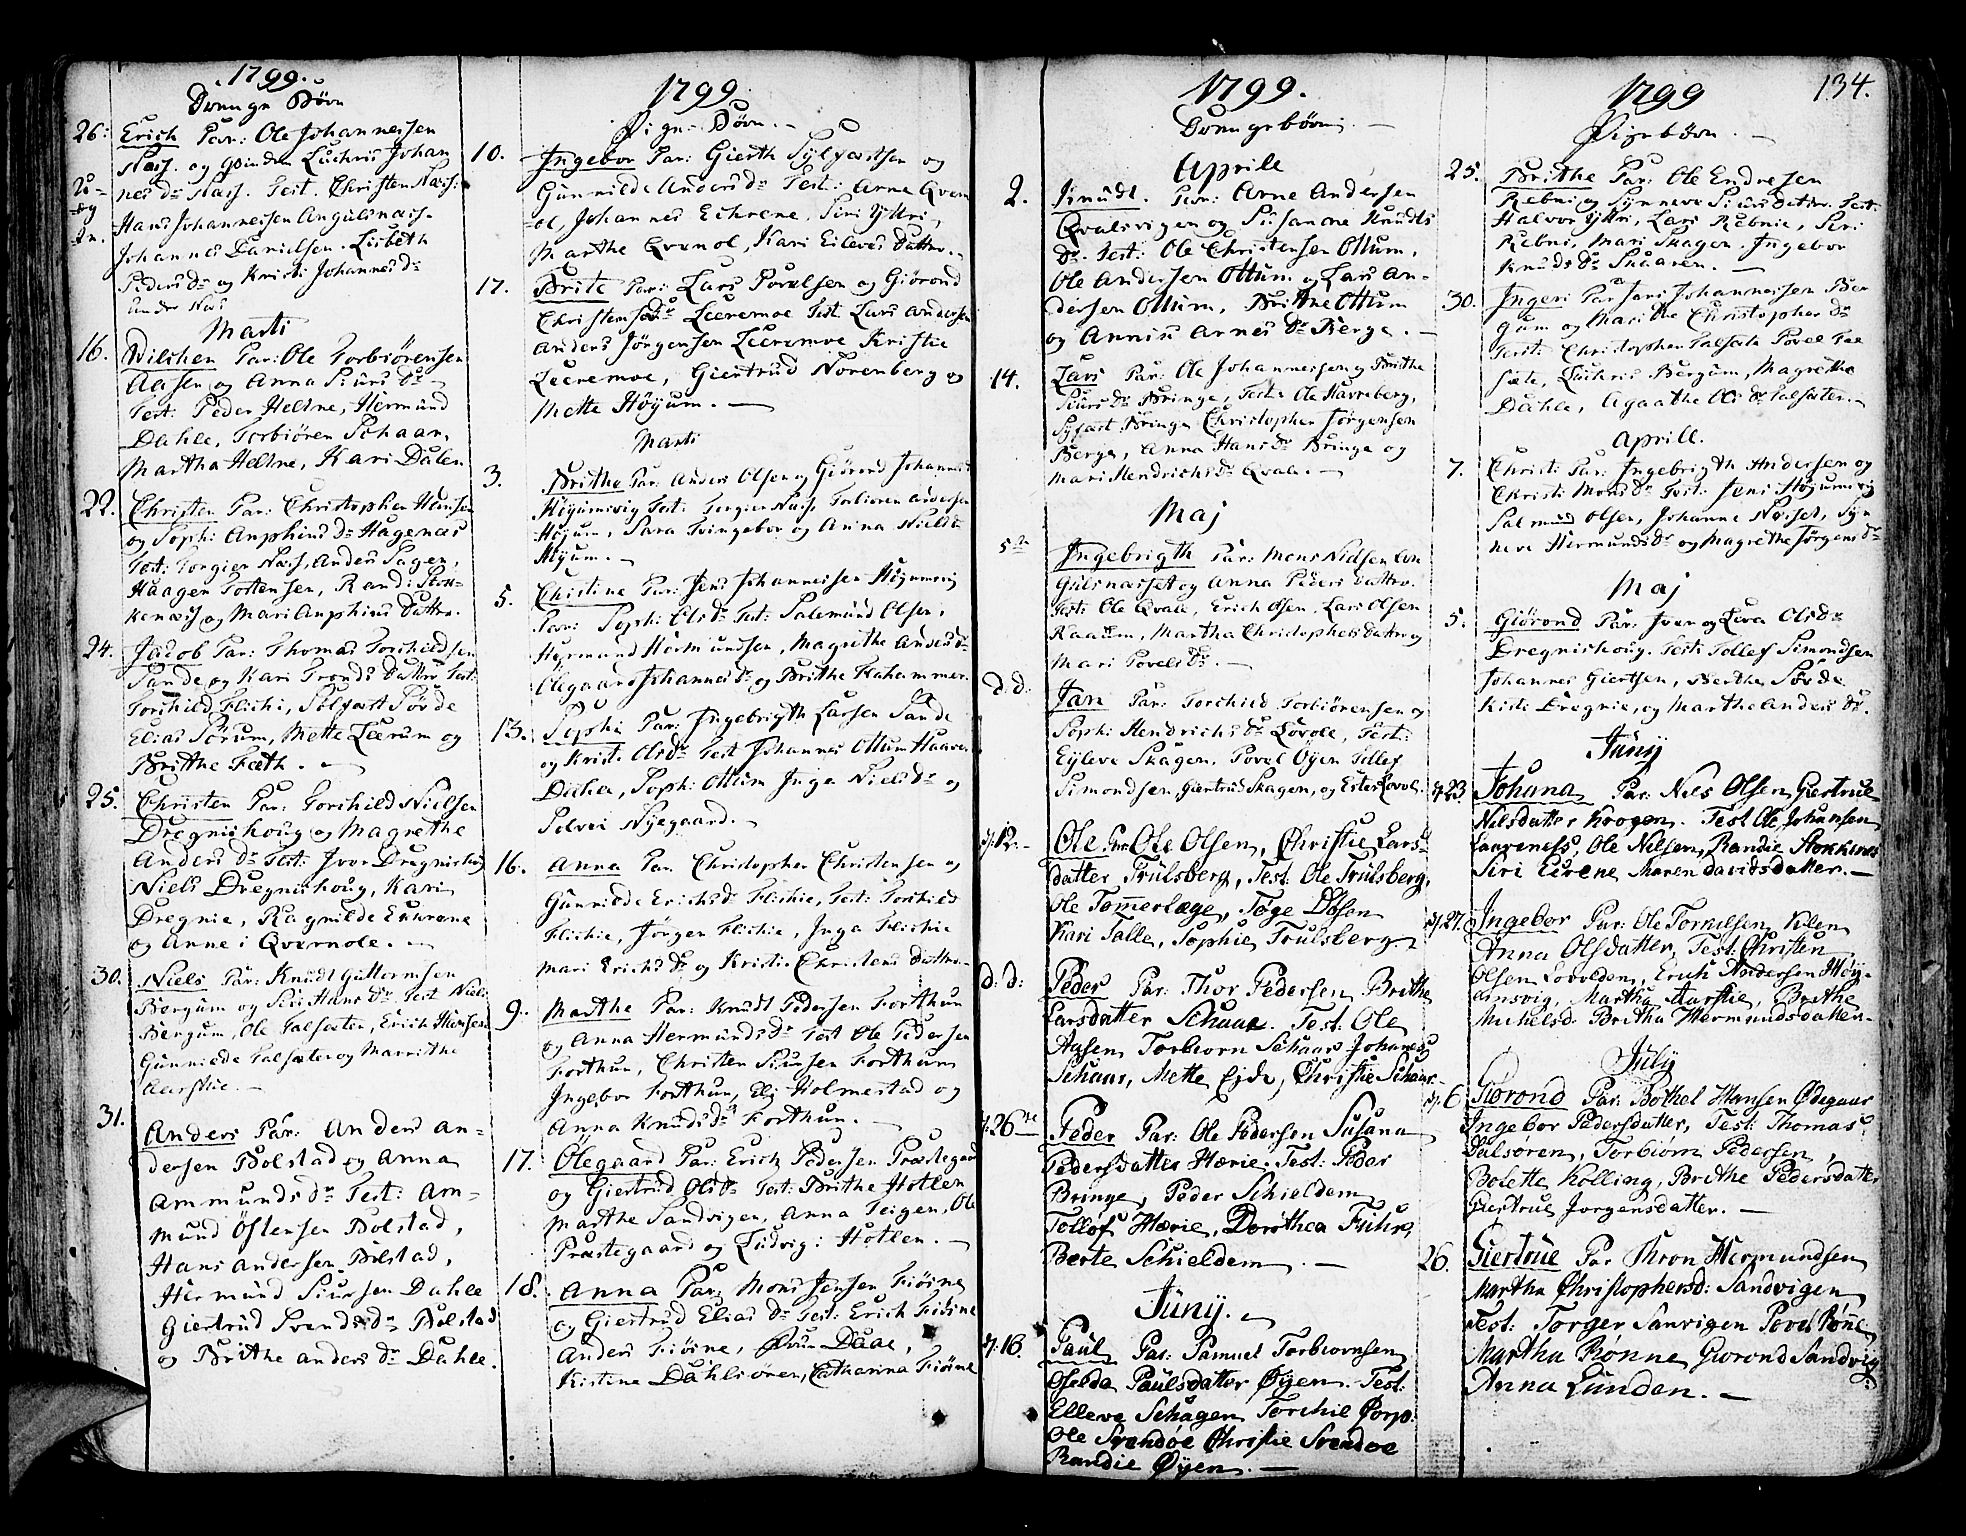 1799.
Drenge Børn
26: Erich Par: Ole Johannessen
Næss. og Qvinden Luchris Johan
nes dr Næss. Test. Christen Næss:
Hans Johannessen Angulsnæss.
Johannes Danielsen. Lisbeth
Peders dr og Kristi Johannes dr
Marti
16. Wilchen Par: Ole Torbiørensen
Aasen og Anna Siurs dr
Test: Peder Heltne, Hermund
Dahle, Torbiøren Schaar,
Martha Heltne, Kari Dalen
22. Christen Par: Christopher Hansen
og Soph: Anphins dr Hagenæs
Test: Torgier Næss, Anders Sagen,
Haagen Tostensen, Randi Stok-
kenæs og Mari Anphins Datter.
24. Jacob Par: Thomas Torchildsen
Sande og Kari Tronds Datter Test:
Torchild Flichi, Sølfæst Sørde
Elias Sørum, Mette Leerum og
Brithe Fæth.
25. Christen Par: Torchild Nielsen
Dregnishoug og Magrethe
Anders dr Test: Iver Dregnishoug
Niels Dregnishoug, Kari
Dregnie, Ragnilde Euurene
og Anne i Qvernole.
30. Niels Par: Knudt Guttormsen
Bergum og Siri Hans dr Test Niels
Bergum, Ole Talsæter, Erich Hansen
Gunnilde Talsæter og Marrithe
Aarstie.
31. Anders Par: Anders An-
dersen Bolstad og Anna
Ammunds dr Test: Am-
mund Östensen Bolstad,
Hans Andersen Bolstad,
Hermund Siursen Dahle
Giertrud Svends dr Bolstad
og Brithe Anders dr Dahle.
1799.
Pige-Børn.
10. Ingebor Par: Gierth Sylfæstsen og
Gunnilde Anders dr Test: Arne Qvern
ol, Johannes Eehrene, Siri Yttri,
Marthe Qvernol, Kari Eilevs Datter.
17. Brite Par: Lars Povelsen og Giörond
Christens dr Leeremoe Test Lars Andersen
Anders Jörgensen Leeremoe Kristie
Leeremoe, Giertrud Norenberg og
Mette Höyum.
Marti
3. Brithe Par: Anders Olsen og Giörond Johannes dr
Höyumsvig Test: Torgier Næss, Torbiøren Andersen
Höyum, Sara Tvingebor og Anna Niels dr
Höyum.
5. Christine Par: Jens Johannessen Höyumsvig
Par: Soph: Ols dr Test: Salemund Olsen,
Hermund Hermundsen, Magrethe Anders dr
Olegaard Johannes dr og Brithe Kahammer
13. Sophi Par: Ingebrigth Larsen Sande
og Krist: Ols dr Test Johannes Ottum Haaver
Dahle, Soph: Ottum Inga Niels dr og
Selvei Nyegaard.
16. Anna Par Christopher Christensen og
Gunnilde Erichs dr Flichie, Test: Torchild
Flichie, Jörgen Flichie, Inga Flichie
Mari Erichs dr og Kristi Christens datter.
9. Marthe Par: Knudt Pedersen Forthun
og Anna Hermunds dr Test Ole Pedersen
Forthun, Christen Siursen Forthun
Ingebor Forthun, Eli Holmestad og
Anna Knuds dr Forthun.
17. Ölegaard Par: Erich Pedersen Præstegaard
og Giertrud Ols dr Test: Brithe Hotlen
Marthe Sandvigen, Anna Teigen, Ole
Præstegaard og Ludvig: Hotlen.
18. Anna Par: Mons Jensen Fiösne
og Giertrud Elias dr Test: Erich Fiösne
Anders Fiösne, Daae,
Kirstine Dahlsören, Catharina Fiösne
1799.
Drengebørn.
Aprill
2. Knudt. Par: Arne Andersen
Qvalsvigen og Susanne Knudts
dr. Test: Ole Christensen Ottum,
Ole Andersen Ottum og Lars An-
dersen Ottum, Brithe Ottum
og Annis Arnes dr Berge.
14. Lars Par: Ole Johannessen og Brithe
Siurs dr Bringe, Test: Ole Havreberg,
Syfæst Bringe Christopher Jörgensen
Berge, Anna Hans dr Bringe og
Mari Hendrichs dr Qvale.
Maj
5te Ingebrigth Par: Mons Nielsen An
gulsnæsset og Anna Peders Datter.
Test: Ole Qvale, Erich Olsen, Lars Olsen
Kaarem, Martha Christophers datter og
Mari Povels dr.
d:d: Jan Par: Torchild Torbiörensen og
Soph: Hendrichs dr Lovole, Test:
Eyleve Skagen, Povel Öyen Tollef
Simondsen, Giertrud Skagen, og Ester Lovole.
d: 12. Ole Par Ole Olsen, Christie Lars-
datter Trulsberg, Test: Ole Trulsberg,
Ole Tømmerlæge, Tøge Døsen
Kari Talle, Sophie Trulsberg
d: d: Peder Par: Thor Pedersen Brithe
Larsdatter Schaar. Test: Ole
Aasen, Torbiorn Schaar Johannes
Schaar, Mette Eide, Christie Schaar.
d: 26ne Peder Par: Ole Pedersen Susana
Pedersdatter Hærie. Test: Peder
Bringe, Peder Schieldem
Tollof Hærie, Dorothea Fuhre
Berte Schieldem.
Juny.
d: 16. Paul Par: Samuel Torbiornsen
Oselda Paulsdatter Øyen. Test:
Elleve Schagen Torchil Dorp:
Ole Svendøe Christie Svendoe
Randie Øyen.
134.
1799
Pigebörn
25. Brithe Par: Ole Endresen
Rebni og Synneve Siurs datter. Test:
Halvor Yttri, Lars Rebnie, Siri
Rebni, Mari Skagen, Ingebor
Knuds dr Skaaren.
30. Ingeri Par Jens Johannessen Ber
gum og Marithe Christopher dr
Test: Christopher Talsæte Povel Tal
sæte, Luchris Bergum, Magrethe
Dahle, Agaathe Ols dr Talsæter.
Aprill.
7. Christ: Par: Ingebrigth Andersen og
Christi Mons dr Test: Jens Höyumsvig
Salmund Olsen, Johanne Næset, Syn
neve Hermunds dr og Magrethe Jørgens dr
Maj
5. Giörond Par: Iver og Eva Ols dr
Dregnishoug. Test: Tollef Simondsen
Johannes Giertsen, Berthe Sörde
Kisti Dregnie, og Marthe Anders dr.
Juny
d: 23 Johana Par: Nils Olsen Giertrue
Nilsdatter Krogen. Test Ole Johansen
Laureness, Ole Nilsen, Randie Stokkenes
Siri Eirene Maren Davidsdatter.
d: 27. Ingebor Par: Ole Torkilsen Kilen
Anna Olsdatter, Test: Christen
Olsen Lovolden, Erich Andersen Høy-
umsvig, Martha Aarstie, Brithe
Michelsd. Britha Hermundsdatter
July
d: 6 Giorond Par: Bothel Hansen Ødegaar
Ingebor Pedersdatter, Test: Thomas
Dalsøren, Torbiorn Pedersen,
Bolette Kolling, Brithe Pedersdatter
Giertrue Jorgensdatter.
26. Giertrue Par Thron Hermundsen
Martha Christophersd: Sandvigen
Test: Torger Sanvigen Povel Rønne
Martha Rønne Giorond Sandvig
Anna Lunden.